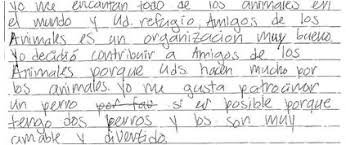 Yo me encantan todo de los animales en
el mundo y Ud. refugio, Amigos de los
Animales es un organización muy bueno.
Yo decidió contribuir a Amigos de los
Animales porque Uds hacen mucho por
los animales. Yo me gusta patrocinar
un perro por fav si es posible porque
tengo dos perros y los son muy
amable y divertido.